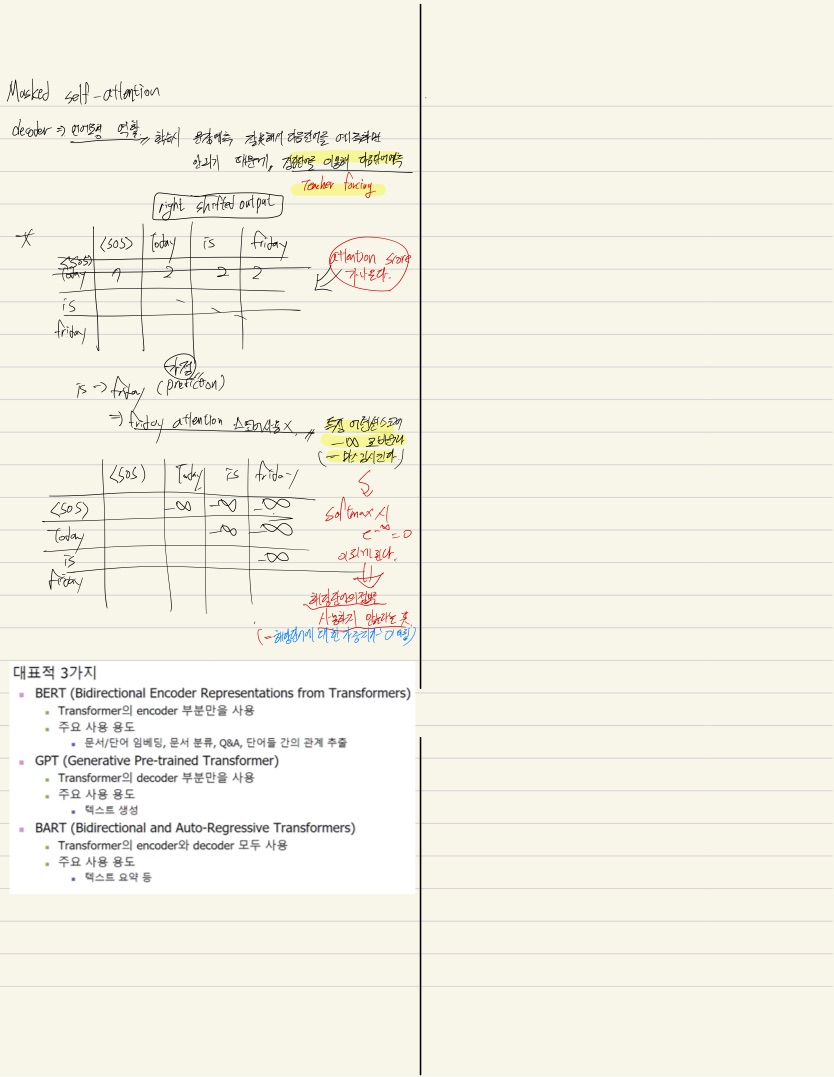 Masked self-attention
decoder ⇒ 언어모델 역할 // 학습시 문장예측, 잘못해서 다음단어를 예측하면
안되기 때문에, 정답단어를 이용해 다음단어예측
Teacher forcing
right shifted output
<SOS> Today is friday
<SOS>
Today 1 2 2 2
attention score
가 나온다.
is
friday
is → friday (prediction)
⇒ friday attention 스코어 사용 X
특정 어텐션스코어
-∞
<SOS> Today is friday
<SOS> -∞ -∞ -∞
Today -∞ -∞
is -∞
friday
softmax시
e^-∞ = 0
이 되기된다.
해당단어의 정보
사용하지 않는다는 뜻
(-해당단어에 대한 가중치가 0 역할)
대표적 3가지
BERT (Bidirectional Encoder Representations from Transformers)
Transformer의 encoder 부분만을 사용
주요 사용 용도
문서/단어 임베딩, 문서 분류, Q&A, 단어들 간의 관계 추출
GPT (Generative Pre-trained Transformer)
Transformer의 decoder 부분만을 사용
주요 사용 용도
텍스트 생성
BART (Bidirectional and Auto-Regressive Transformers)
Transformer의 encoder와 decoder 모두 사용
주요 사용 용도
텍스트 요약 등